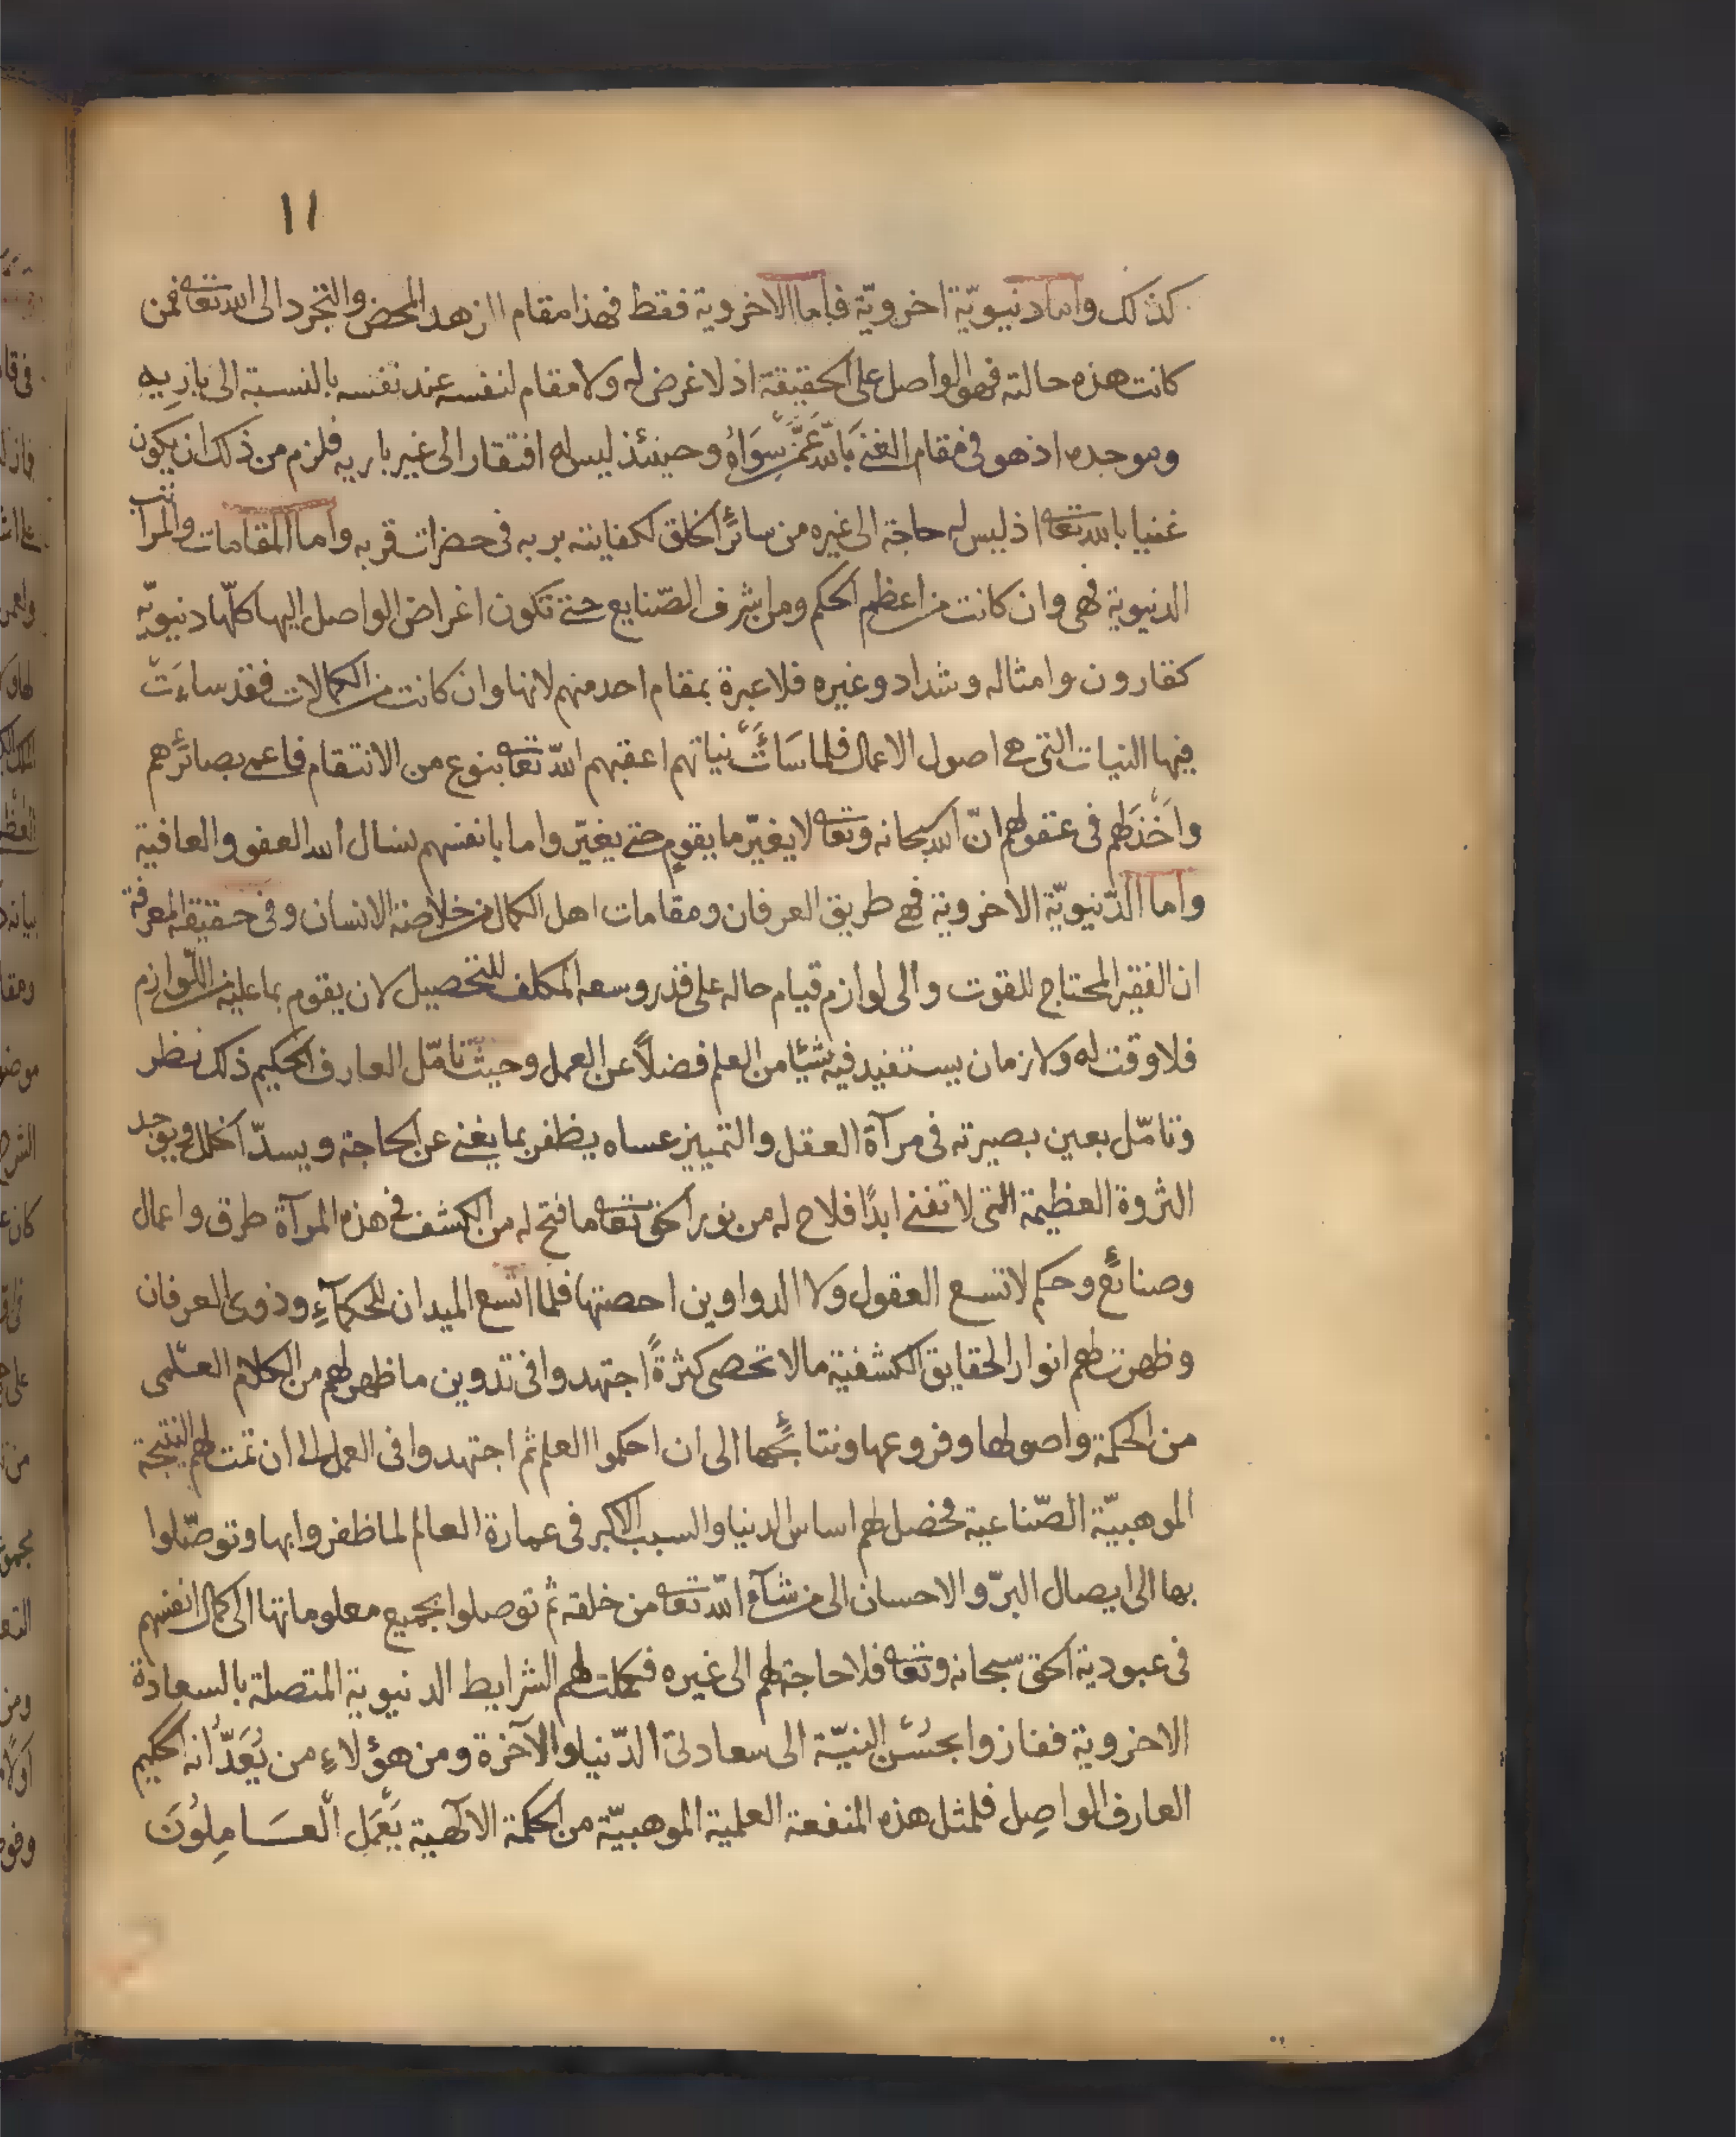 ١١
كذلك واما دنيويّة اخرويّة فاما الاخروية فقط فهذا مقام الزهد المحض والتجرد الى الله تعا فمن
كانت هذه حالته فهو الواصل على الحقيقة اذ لا غرض له ولا مقام لنفسه عند نفسه بالنسبة الى باريه
وموجده اذ هو فى مقام الغنى بالله عمن سواه وحينئذ ليس له افتقار الى غير باريه فلزم من ذلك ان يكون
غنيا بالله تعا اذ ليس له حاجة الى غيره من سائر الخلق لكفايته بربه فى حضرات قربه واما المقامات والمراتب
الدنيوية فهى وان كانت من اعظم الحكم ومن اشرف الصّنايع حتى تكون اغراض الواصل اليها كلّها دنيويّة
كقارون وامثاله وشداد وغيره فلا عبرة بمقام احد منهم لانها وان كانت من الكمالات فقد ساءَت
فيها النيات التى هى اصول الاعمال فلما سَاءَت نياتهم اعقبهم الله تعا بنوع من الانتقام فاعمى بصائرهم
واَخْذَلهم فى عقولهم انّ الله سبحانه وتعا لا يغيّر ما بقومٍ حتى يغيّروا ما بانفسهم نسال الله العفو والعافية
واما الدّنيويّة الاخروية فهى طريق العرفان ومقامات اهل الكمال من خلاصة الانسان وفى حقيقة المعرفة
ان الفقير المحتاج للقوت والى لوازم قيام حاله على قدر وسعه المكلف للتحصيل لان يقوم بما عليه من اللّوازم
فلا وقت له ولا زمان يستفيد فيه شيئا من العلم فضلاً عن العمل وحيث تامّل العارف الحكيم ذلك نظر
وتامّل بعين بصيرته فى مرآة العقل والتمييز عساه يظفر بما يغنى عن الحاجة ويسدّ الخلل ويوجد
الثروة العظيمة التى لا تفنى ابدًا فلاح له من نور الحق تعا ما فتح له من الكشف فى هذه المرآة طرق واعمال
وصنائع وحكم لا تسع العقول ولا الدواوين احصتها فلما اتسع الميدان للحكمآءِ وذوى العرفان
وظهرت لهم انوار الحقايق الكشفية ما لا تحصى كثرةً اجتهدوا فى تدوين ما ظهر لهم من الكلام العلمى
من الحكمة واصولها وفروعها ونتائجها الى ان احكموا العلم ثم اجتهدوا فى العمل الى ان تمت لهم النتيجة
الموهبيّة الصّناعية فحصل لهم اساس الدنيا والسبب الاكبر فى عمارة العالم لما ظفروا بها وتوصّلوا
بها الى ايصال البرّ والاحسان الى من شآء الله تعا من خلقه ثم توصلوا بجميع معلوماتها الى كمال انفسهم
فى عبودية الحق سبحانه وتعا فلا حاجة لهم الى غيره فكملت لهم الشرايط الدنيوية المتصلة بالسعادة
الاخروية ففازوا بحُسْن النيّة الى سعادتى الدّنيا والآخرة ومن هؤلاءِ من يُعَدُّ انه الحكيم
العارف الواصِل فلمثل هذه المنفعة العلمية الموهبيّة من الحكمة الالٓهية يَعْمَلِ الْعَامِلُونَ